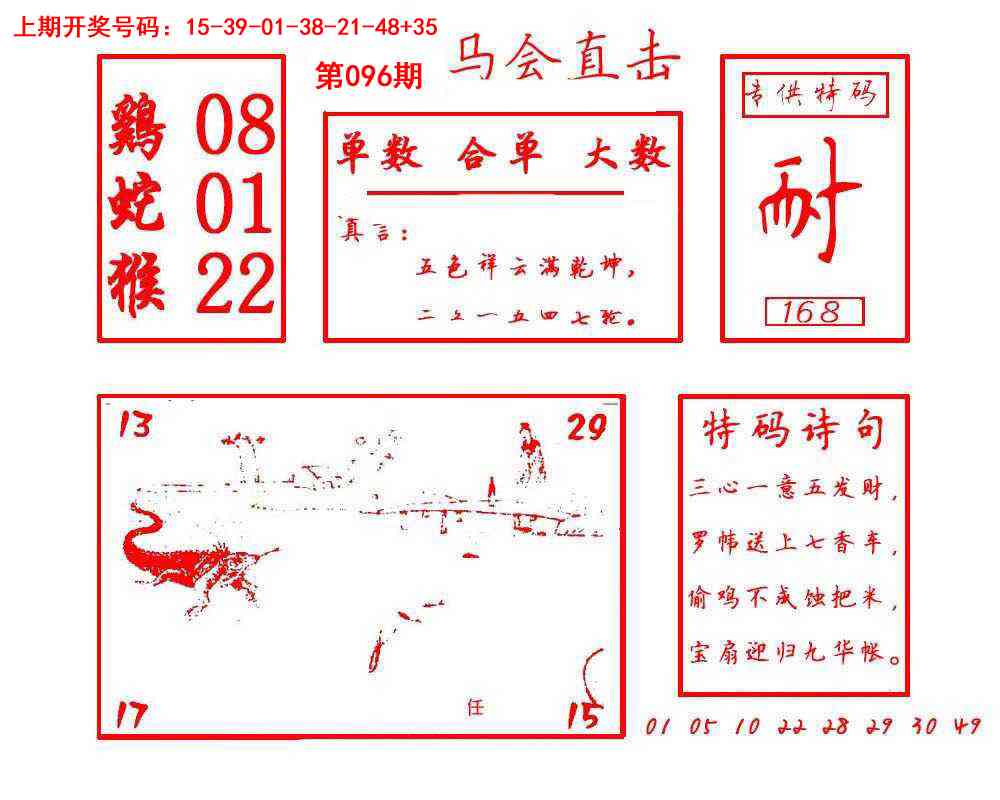 上期开奖号码：15-39-01-38-21-48+35
第096期
马会直击
鷄 08
蛇 01
猴 22
单数 合单 大数
真言：
五色祥云满乾坤，
二五一五四七轮。
专供特码
耐
168
13
29
17
任
15
特码诗句
三心一意五发财，
罗帏送上七香车，
偷鸡不成蚀把米，
宝扇迎归九华帐。
01 05 10 22 28 29 30 49